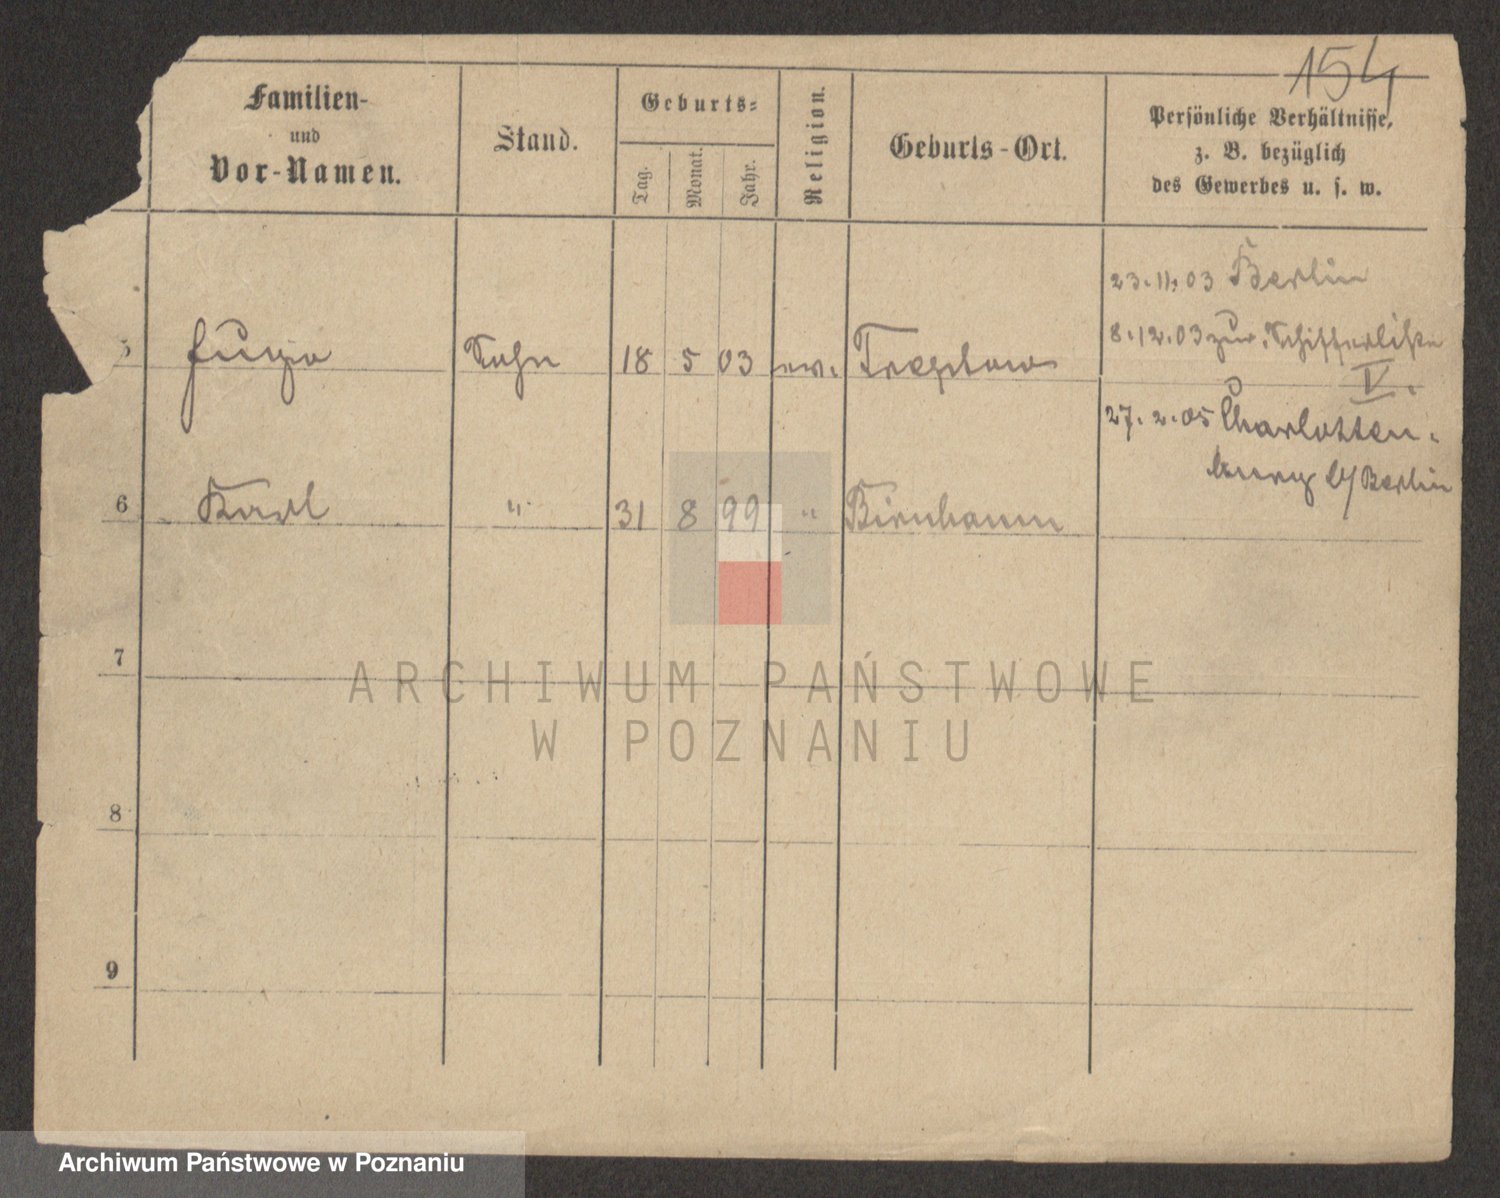 154
Familien-
und
Vor-Namen.
Stand.
Geburts-
Tag.
Monat.
Jahr.
Religion.
Geburts-Ort.
Persönliche Verhältnisse,
z. B. bezüglich
des Gewerbes u. s. w.
23.11.03 Berlin
8.12.03 zur Schifferliste
V.
5 Hugo Sohn 18 5 03 ev. Treptow
27.2.05 Charlotten-
burg b/ Berlin
6 Karl " 31 8 99 " Birnbaum
7
8
9
ARCHIWUM PAŃSTWOWE
W POZNANIU
Archiwum Państwowe w Poznaniu